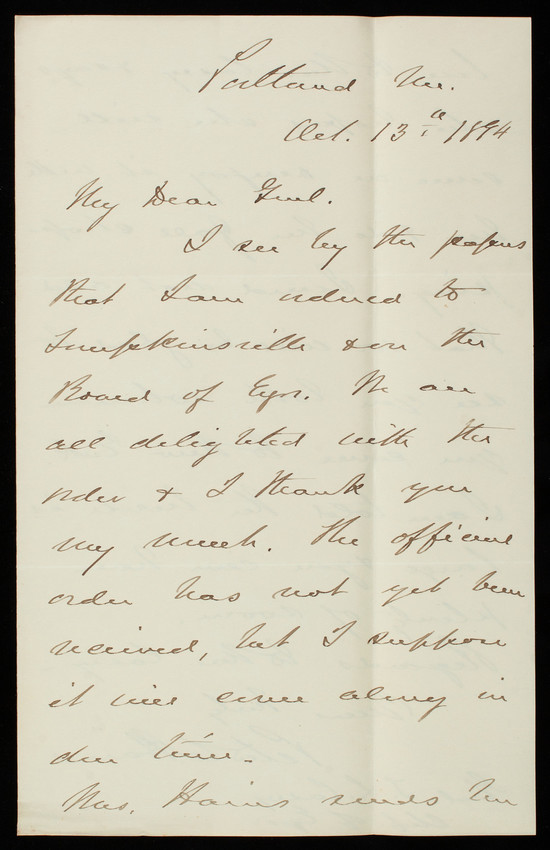 Portland Me.
Oct. 13th 1894
My Dear Genl.
I see by the papers
that I am ordered to
Tompkinsville & on the
Board of Egrs. We are
all delighted with the
order & I thank you
very much. The official
order has not yet been
received, but I suppose
it will come along in
due time.
Mrs. Hains sends her